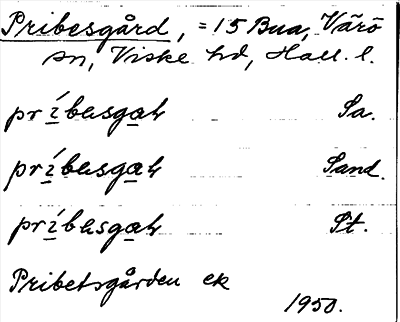 Pribesgård, = 15 Bua, Värö
sn, Viske hd, Hall. l.
príbasgaḥ Sa.
príbasgaḥ Sand.
príbasgaḥ St.
Pribetsgården ek
1950.